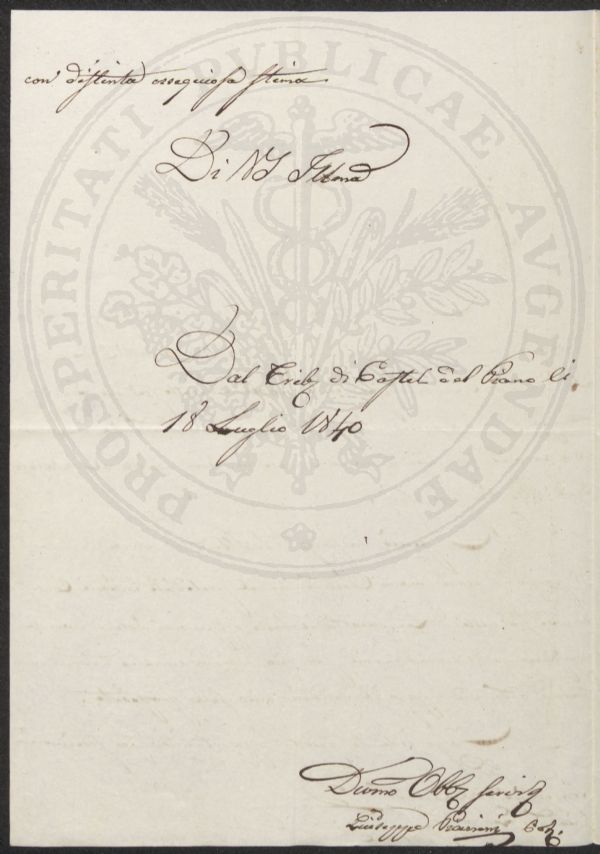 con distinta ossequiosa stima
Di VS Illma
Dal Trib di Castel del Piano li
18 Luglio 1840
Devmo Obb Serv
Giuseppe
PROSPERITATI PUBLICAE AVGENDAE